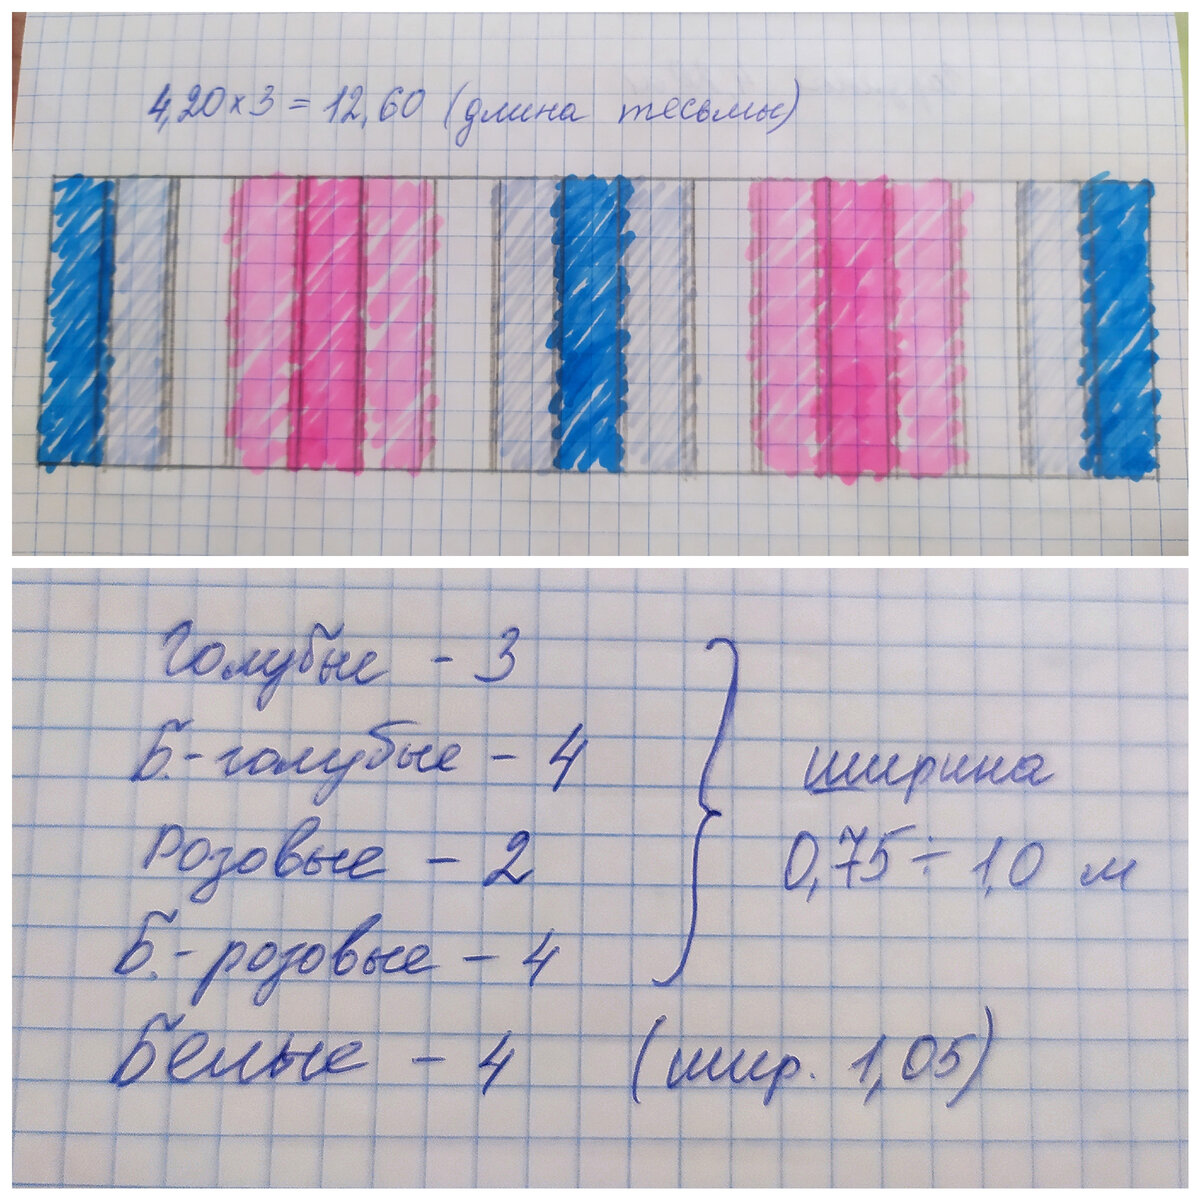 4,20 × 3 = 12,60 (длина тесьмы)
Голубые - 3
Б.-голубые - 4
Розовые - 2
Б.-розовые - 4
ширина
0,75 ÷ 1,0 м
Белые - 4 (шир. 1,05)